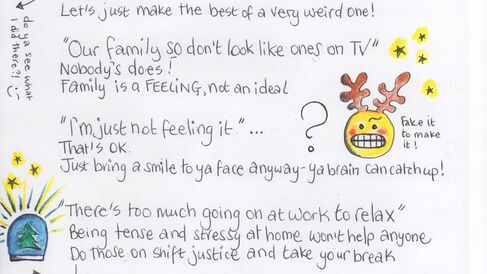 Let's just make the best of a very weird one!
do ya see what
i did there?! :)
"Our family so don't look like ones on TV"
Nobody's does!
Family is a FEELING, not an ideal
"I'm just not feeling it."...
That's OK.
Just bring a smile to ya face anyway - ya brain can catch up!
?
Fake it
to make
it!
"There's too much going on at work to relax"
Being tense and stressy at home won't help anyone
Do those on shift justice and take your break